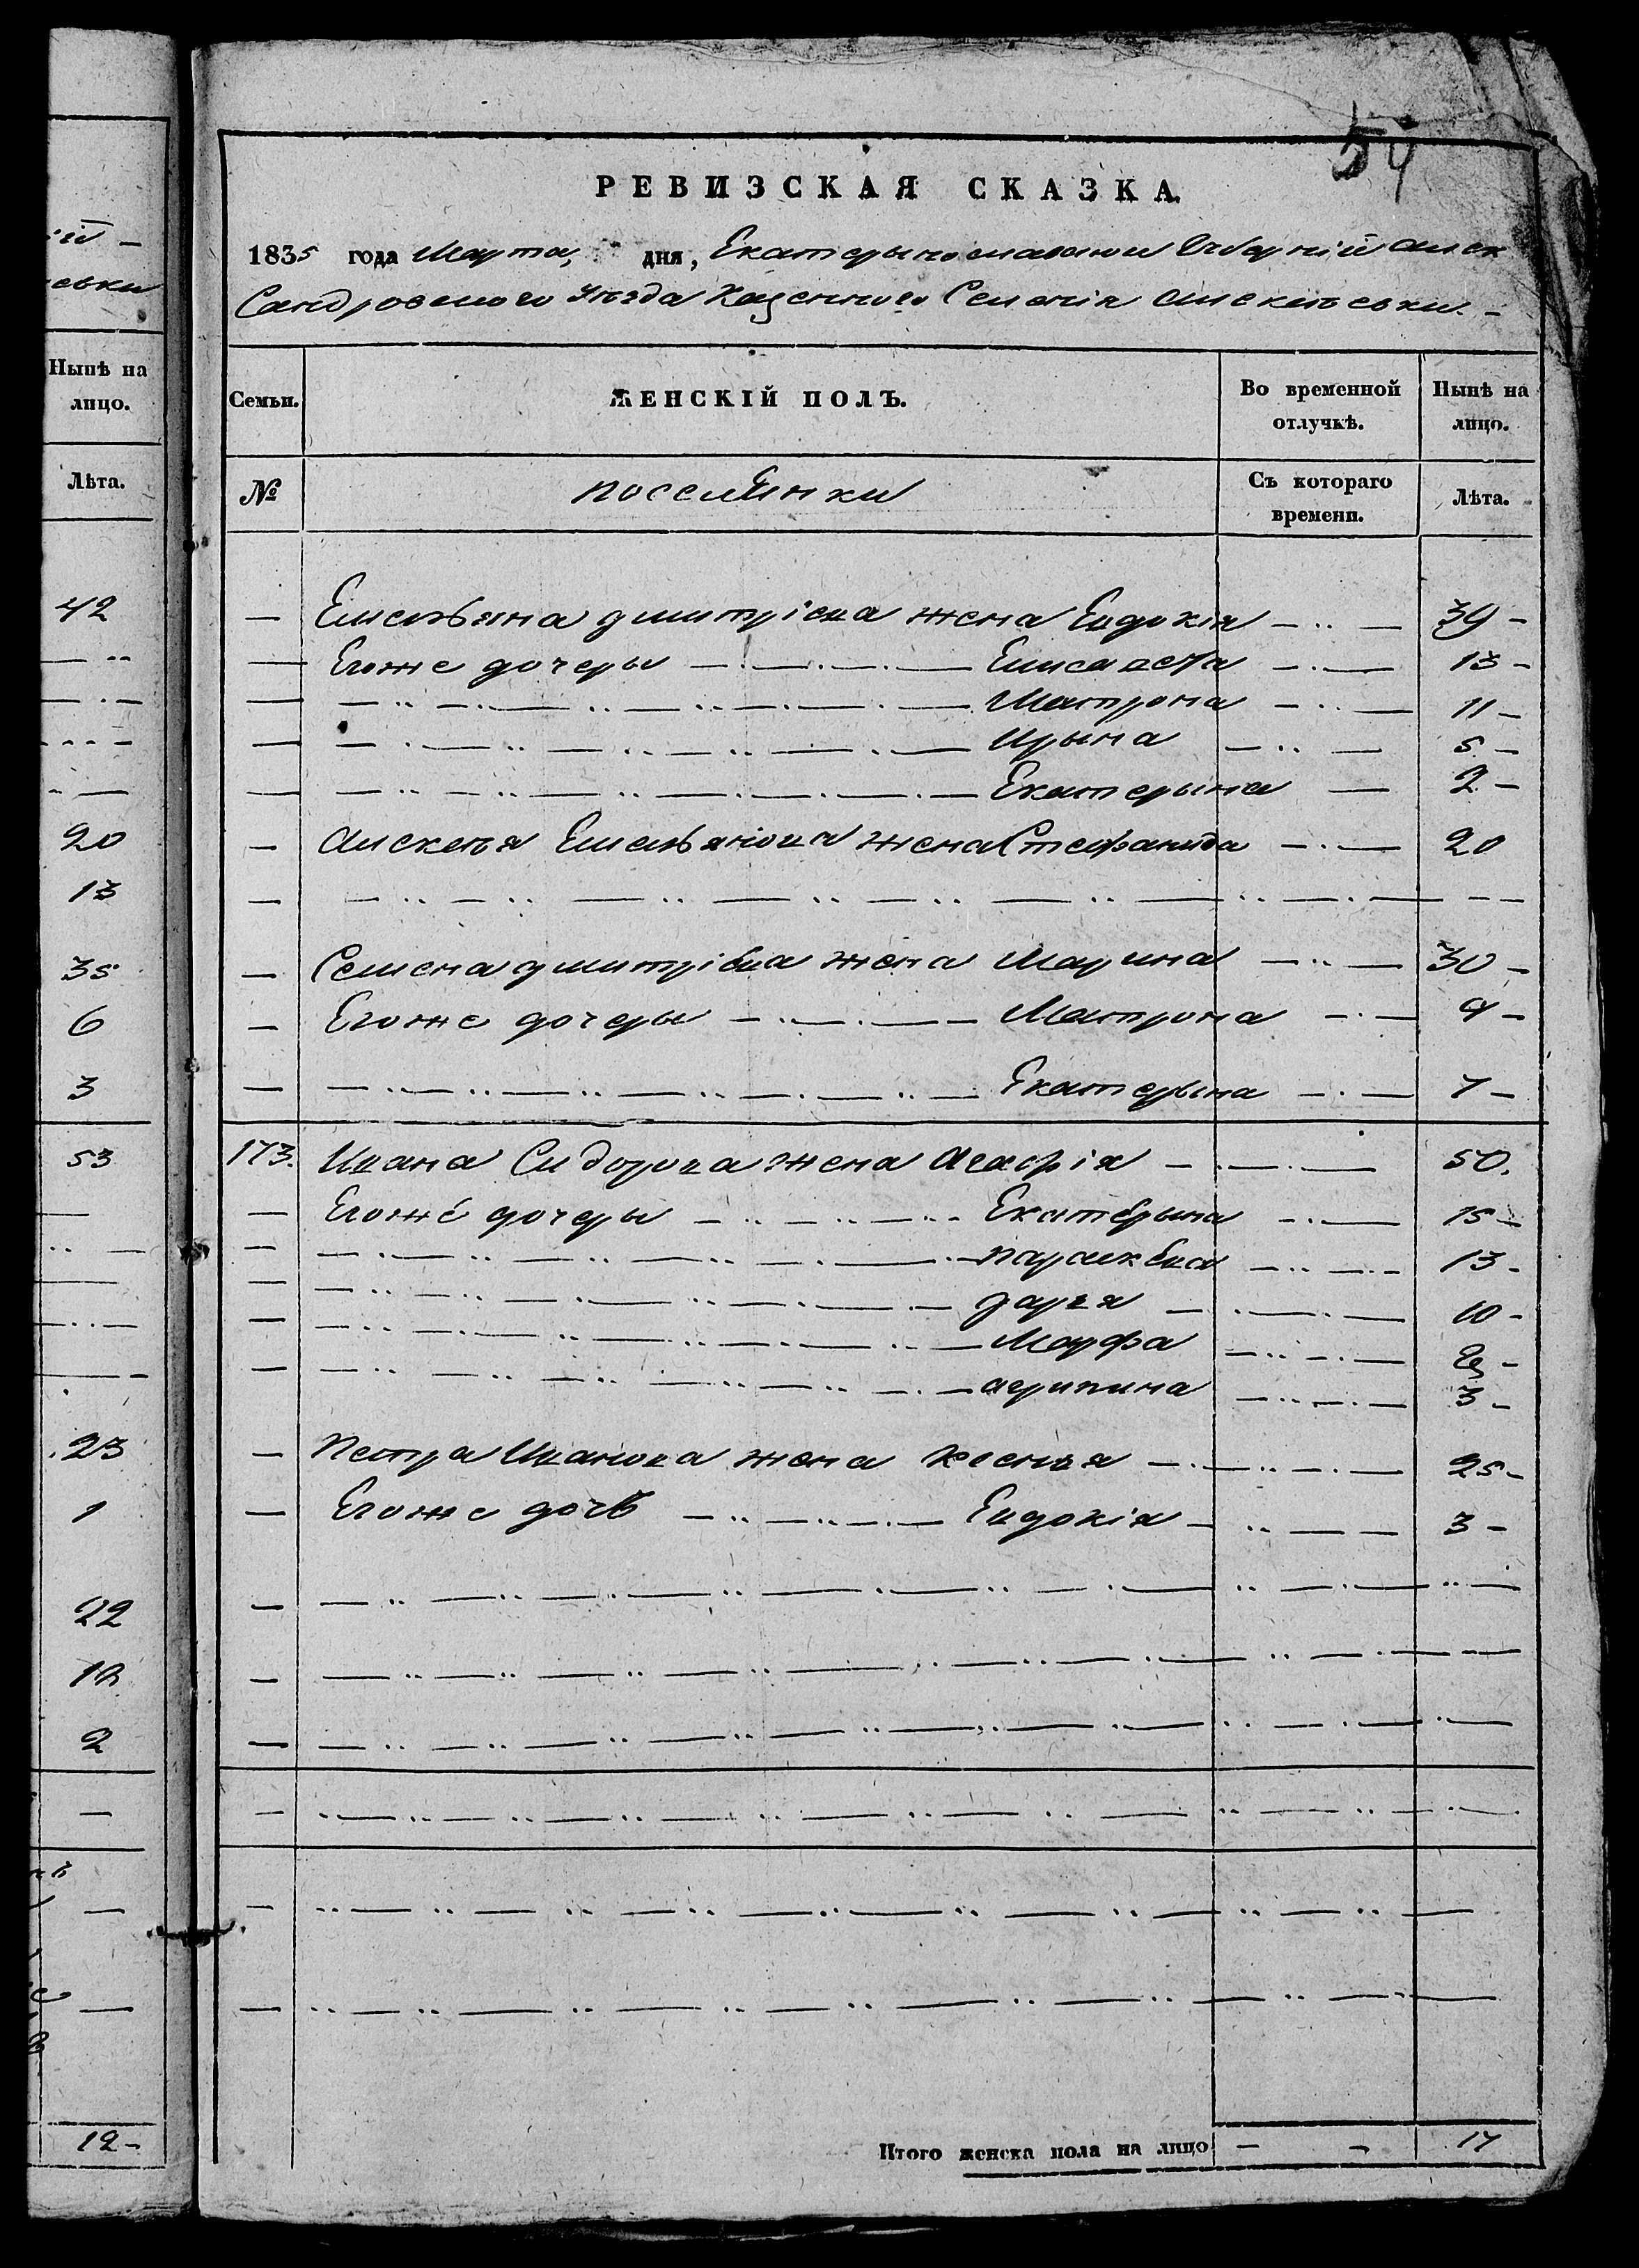 54
РЕВИЗСКАЯ СКАЗКА.
1835 года Марта, дня, Екатерынославской Губерніи Алек
Сандровского Уѣзда Казенного Селенія Алексѣевки.
Семьи.
ЖЕНСКІЙ ПОЛЪ.
Во временной отлучкѣ.
Нынѣ на лицо.
№
поселянки
Съ котораго времени.
Лѣта.
— Емельяна дмитріева жена Евдокія 39
— Егоже дочеры Елисавета 13
— Матрона 11
— Ирына 5
— Екатерына 2
— Алексѣя Емельянова жена Стефанида 20
— Семена дмитріева жена Марина 30
— Егоже дочеры Матрона 9
— Екатерына 7
173. Ивана Сидорова жена Агафія 50.
— Егоже дочеры Екатерына 15
— параскева 13
— дарья 10
— Марфа 8
— агрипина 3
— Петра Иванова жена Ксенья 25
— Егоже дочь Евдокія 3
Итого женска пола на лицо — — 17
евки
Нынѣ на лицо.
Лѣта.
42
20
13
35
6
3
53
23
1
22
12
2
12